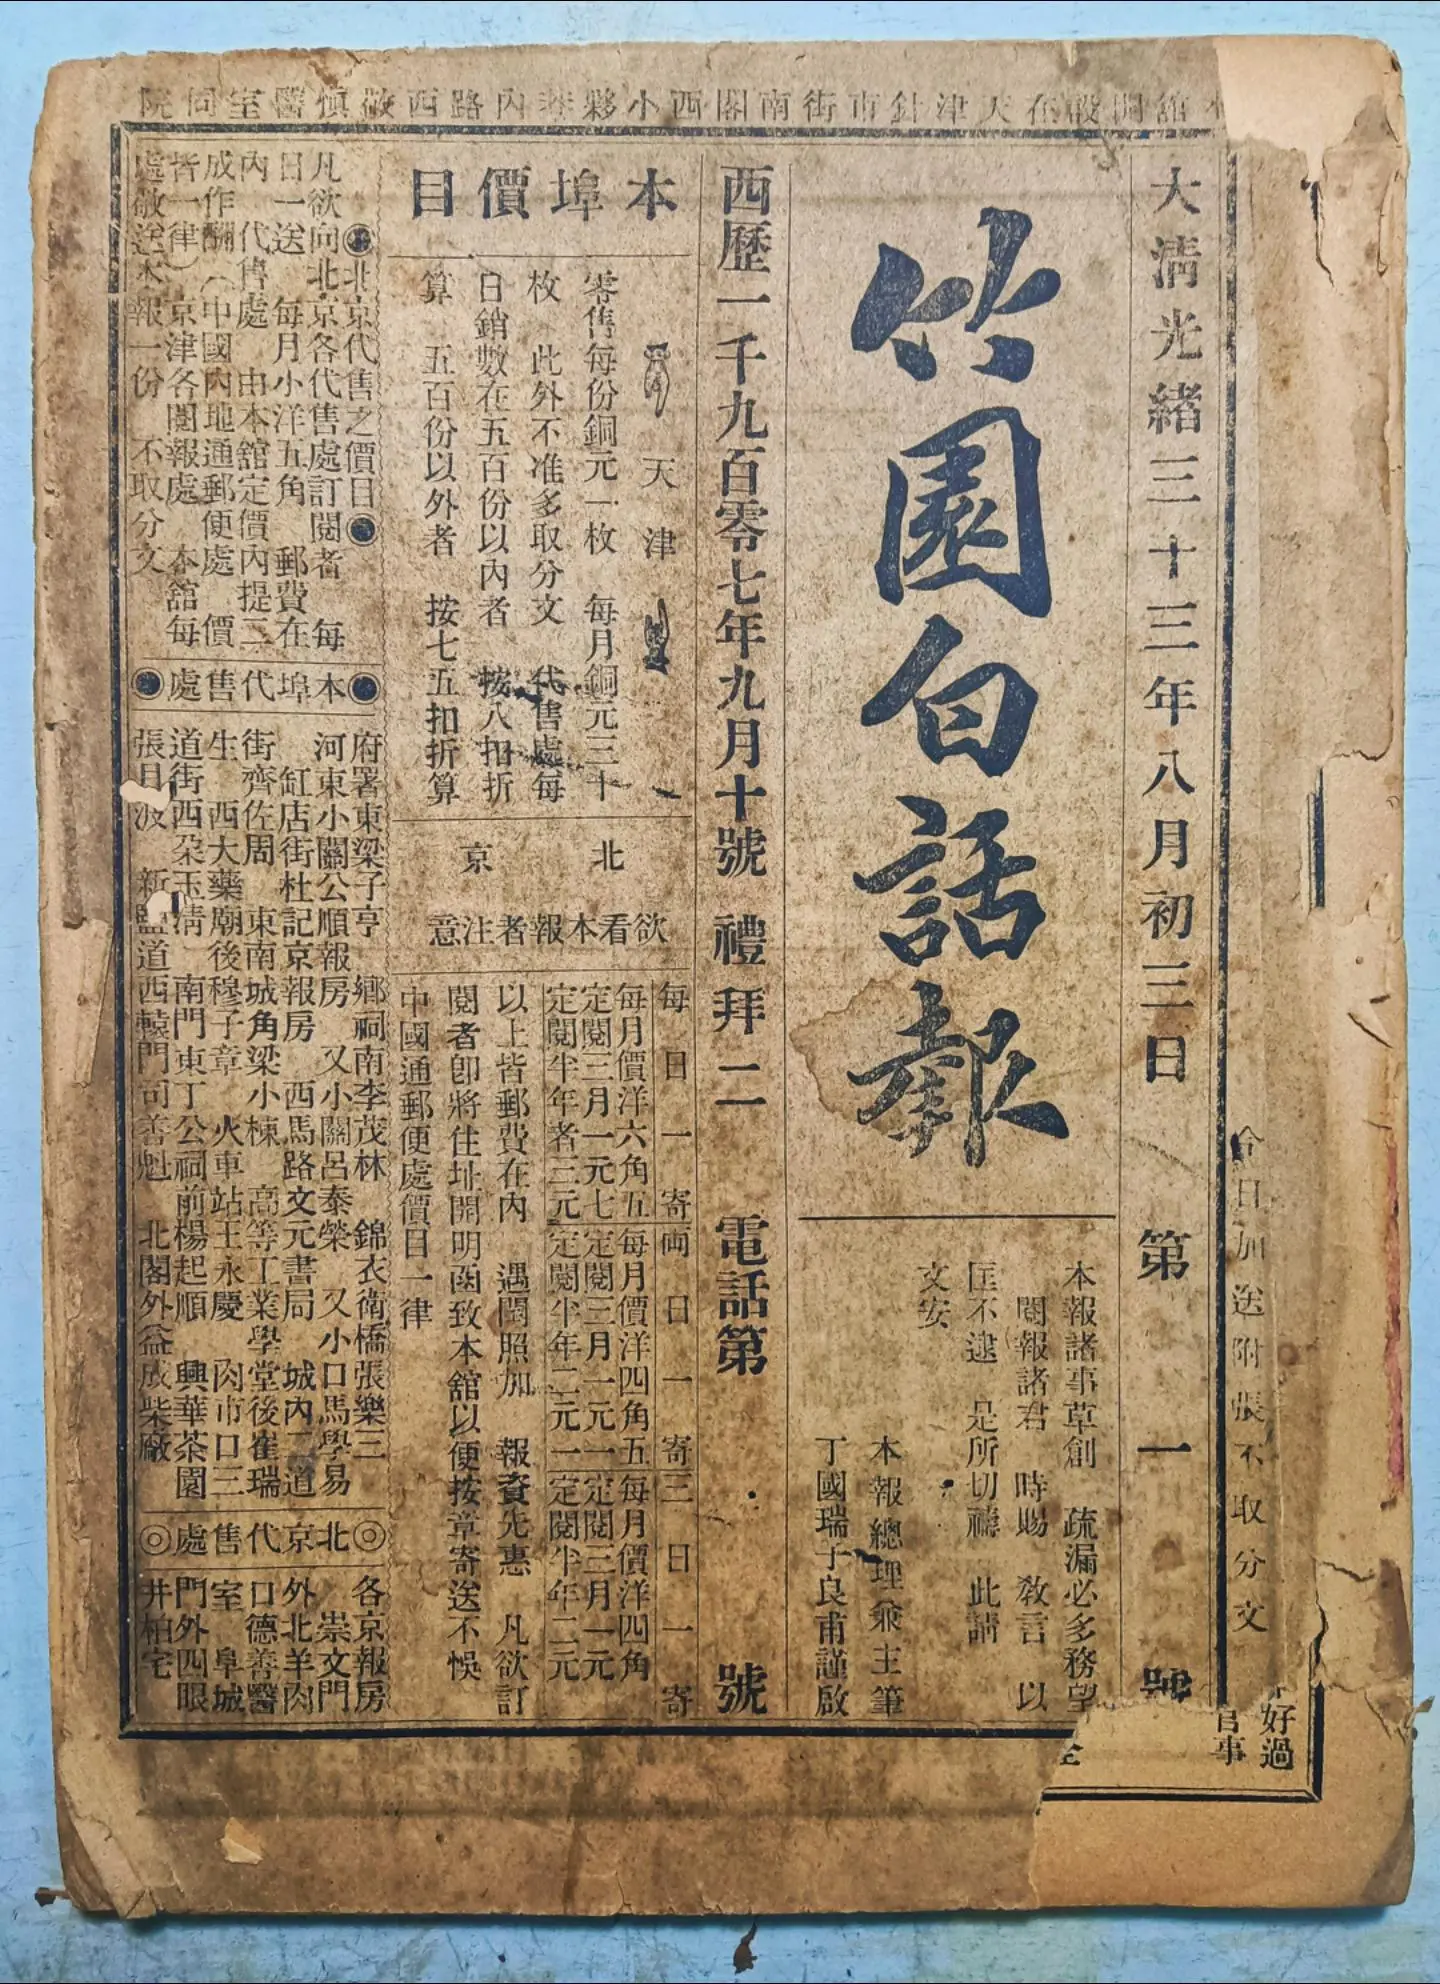 本舘開設在天津針市街南閣西小夥巷內路西敬愼醫室同院
今日加送附張不取分文
大清光緒三十三年八月初三日　第一號
竹園白話報
本報諸事草創　疏漏必多務望
閱報諸君　時賜　敎言　以
匡不逮　是所切禱　此請
文安
本報總理兼主筆
丁國瑞子良甫謹啟
西歷一千九百零七年九月十號　禮拜二　電話第　號
本埠價目
天津
零售每份銅元一枚　每月銅元三十
枚　此外不准多取分文　代售處每
日銷數在五百份以內者　按八扣折
算　五百份以外者　按七五扣折算
北京
欲看本報者注意
每日一寄
每月價洋六角五
定閱三月一元七
定閱半年者三元
兩日一寄
每月價洋四角五
定閱三月一元一
定閱半年二元一
三日一寄
每月價洋四角
定閱三月一元
定閱半年二元
以上皆郵費在內　遇閏照加　報資先惠　凡欲訂
閱者卽將住址開明函致本舘以便按章寄送不悞
中國通郵便處價目一律
●北京代售之價目●
凡欲向北京各代售處訂閱者　每
日一送　每月小洋五角　郵費在
內　代售處　由本舘定價內提二
成作酬（中國內地通郵便處　價
皆一律）京津各閱報處　本舘每
處敬送本報一份　不取分文
●本埠代售處●
府署東梁子亨　鄉祠南李茂林　錦衣衛橋張樂三
河東小關公順報房　又小關呂泰榮　又小口馬學易
缸店街杜記京報房　西馬路文元書局　城內二道
街齊佐周　東南城角梁小棟　高等工業學堂後崔瑞
生　西大藥廟後穆子章　火車站王永慶　肉市口三
道街西朶玉淸　南門東丁公祠前楊起順　興華茶園
張月波　新鹽道西轅門司善魁　北閣外益成柴廠
◎北京代售處◎
各京報房
崇文門
外北羊肉
口德善醫
室　阜城
門外四眼
井柏宅
好過
官事